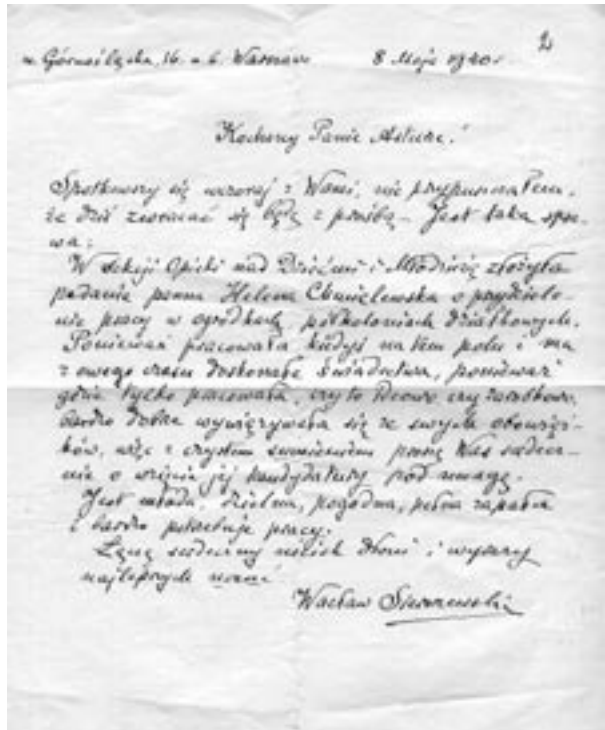 2
u. Górnośląska, 16. m. 6. Warszawa 8 Maja 1940 r.
Kochany Panie Arturze!
Spotkawszy się wczoraj z Wami, nie przypuszczałem,
że dziś zwracać się będę z prośbą – Jest taka spra-
wa:
W Sekcji Opieki nad Dziećmi i Młodzieżą złożyła
podanie panna Helena Chmielewska o przydziele-
nie pracy w ogródkach półkoloniach działkowych.
Ponieważ pracowała kiedyś na tem polu i ma
z owego czasu doskonałe świadectwa, ponieważ
gdzie tylko pracowała, czy to ideowo czy zarobkowo,
bardzo dobrze wywiązywała się ze swych obowiąz-
ków, więc z czystem sumieniem proszę Was serdecz-
nie o wzięcie jej kandydatury pod uwagę.
Jest młoda, dzielna, pogodna, pełna zapału
i bardzo potrzebuje pracy.
Łączę serdeczny uścisk dłoni i wyrazy
najlepszych uczuć
Wacław Sieroszewski